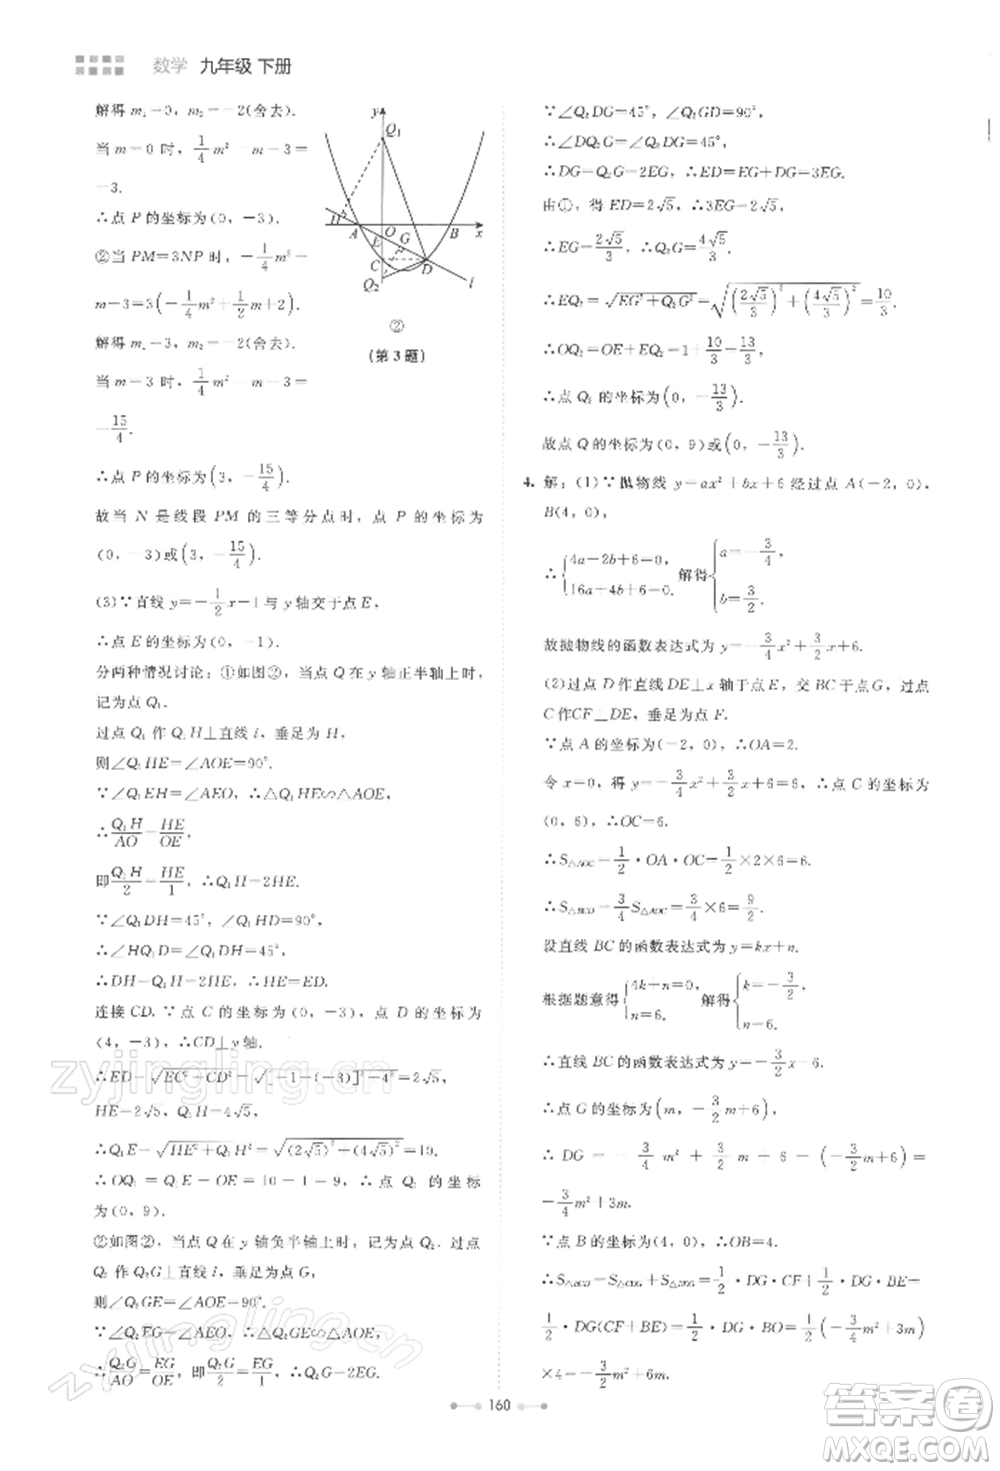 数学 九年级 下册
解得 m₁=0, m₂=-2(舍去).
当 m=0 时, 1/4 m²-m-3=
-3.
∴点 P 的坐标为(0, -3).
②当 PM=3NP 时, -1/4 m²+
m-3=3(-1/4 m²+1/2 m+2).
解得 m₁=3, m₂=-2(舍去).
当 m=3 时, 1/4 m²-m-3=
-15/4.
∴点 P 的坐标为(3, -15/4).
故当 N 是线段 PM 的三等分点时, 点 P 的坐标为
(0, -3)或(3, -15/4).
(3)∵直线 y=-1/2 x-1 与 y 轴交于点 E,
∴点 E 的坐标为(0, -1).
分两种情况讨论:①如图②, 当点 Q 在 y 轴正半轴上时,
记为点 Q₁.
过点 Q₁ 作 Q₁H⊥直线 l, 垂足为 H,
则∠Q₁HE=∠AOE=90°.
∵∠Q₁EH=∠AEO, ∴△Q₁HE∽△AOE,
∴Q₁H/AO=HE/OE,
即Q₁H/2=HE/1, ∴Q₁H=2HE.
∵∠Q₁DH=45°, ∠Q₁HD=90°,
∴∠HQ₁D=∠Q₁DH=45°,
∴DH=Q₁H=2HE, ∴HE=ED.
连接 CD. ∵点 C 的坐标为(0, -3), 点 D 的坐标为
(4, -3), ∴CD⊥y 轴.
∴HE=2√5, Q₁H=4√5,
∴Q₁E=√(HE²+Q₁H²)=√((2√5)²+(4√5)²)=10.
∴OQ₁=Q₁E-OE=10-1=9, ∴点 Q₁ 的坐标
为(0, 9).
②如图②, 当点 Q 在 y 轴负半轴上时, 记为点 Q₂. 过点
Q₂ 作 Q₂G⊥直线 l, 垂足为点 G,
则∠Q₂GE=∠AOE=90°.
∵∠Q₂EG=∠AEO, ∴△Q₂GE∽△AOE,
∴Q₂G/AO=EG/OE, 即Q₂G/2=EG/1, ∴Q₂G=2EG.
y
Q₁
H
A
O
B
x
E
G
C
D
Q₂
l
②
(第 3 题)
∵∠Q₂DG=45°, ∠Q₂GD=90°,
∴∠DQ₂G=∠Q₂DG=45°,
∴DG=Q₂G=2EG, ∴ED=EG+DG=3EG.
由①, 得 ED=2√5, ∴3EG=2√5,
∴EG=2√5/3, ∴Q₂G=4√5/3,
∴EQ₂=√(EG²+Q₂G²)=√((2√5/3)²+(4√5/3)²)=10/3.
∴OQ₂=OE+EQ₂=1+10/3=13/3.
∴点 Q₂ 的坐标为(0, -13/3).
故点 Q 的坐标为(0, 9)或(0, -13/3).
4. 解:(1)∵抛物线 y=ax²+bx+6 经过点 A(-2, 0),
B(4, 0),
∴{4a-2b+6=0, 16a+4b+6=0. 解得{a=-3/4, b=3/2.
故抛物线的函数表达式为 y=-3/4 x²+3/2 x+6.
(2)过点 D 作直线 DE⊥x 轴于点 E, 交 BC 于点 G, 过点
C 作 CF⊥DE, 垂足为点 F.
∵点 A 的坐标为(-2, 0), ∴OA=2.
令 x=0, 得 y=-3/4 x²+3/2 x+6=6, ∴点 C 的坐标为
(0, 6), ∴OC=6.
∴S△AOC=1/2·OA·OC=1/2×2×6=6.
∴S△BCD=3/4 S△AOC=3/4×6=9/2.
设直线 BC 的函数表达式为 y=kx+n.
根据题意得{4k+n=0, n=6. 解得{k=-3/2, n=6.
∴直线 BC 的函数表达式为 y=-3/2 x+6.
∴点 G 的坐标为(m, -3/2 m+6),
∴DG=-3/4 m²+3/2 m+6-(-3/2 m+6)=
-3/4 m²+3m.
∵点 B 的坐标为(4, 0), ∴OB=4.
∴S△BCD=S△CDG+S△BDG=1/2·DG·CF+1/2·DG·BE=
1/2·DG(CF+BE)=1/2·DG·BO=1/2(-3/4 m²+3m)
×4=
160
zyjingling.cn
zyjingling.cn
答案卷
MXQE.COM